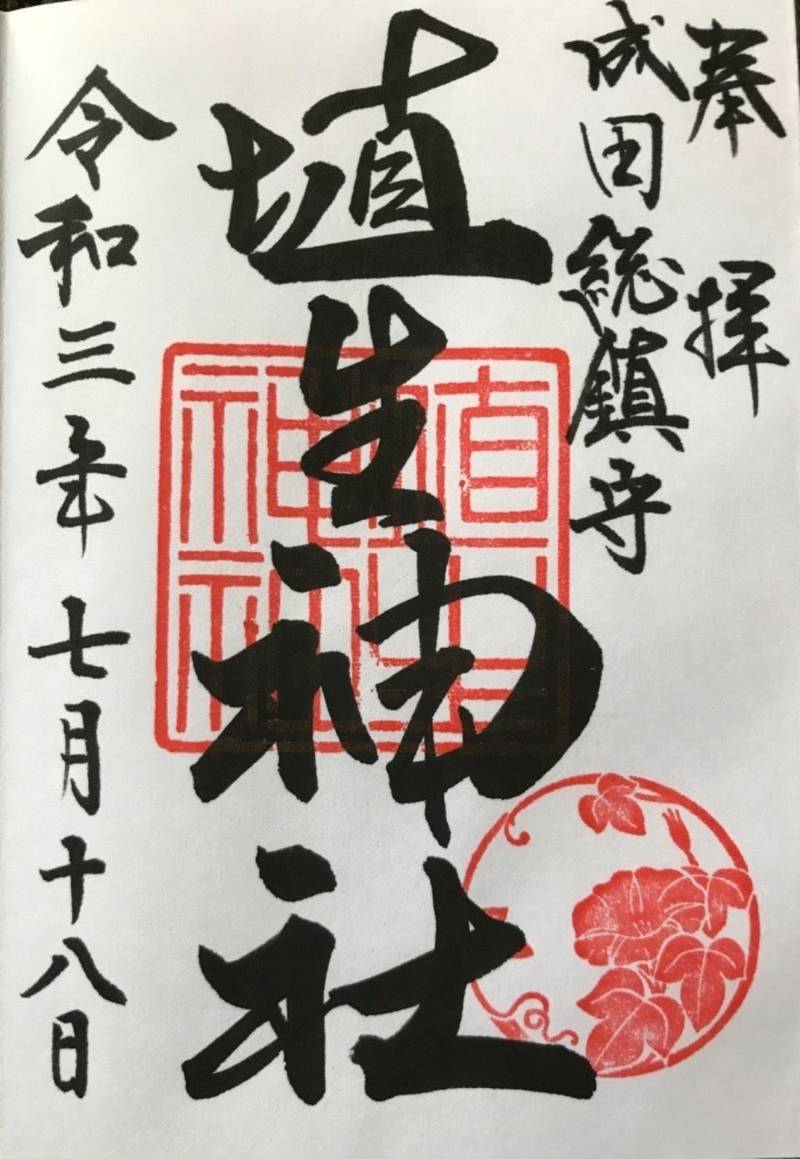 奉拝
成田総鎮守
埴生神社
埴生神社
令和三年七月十八日